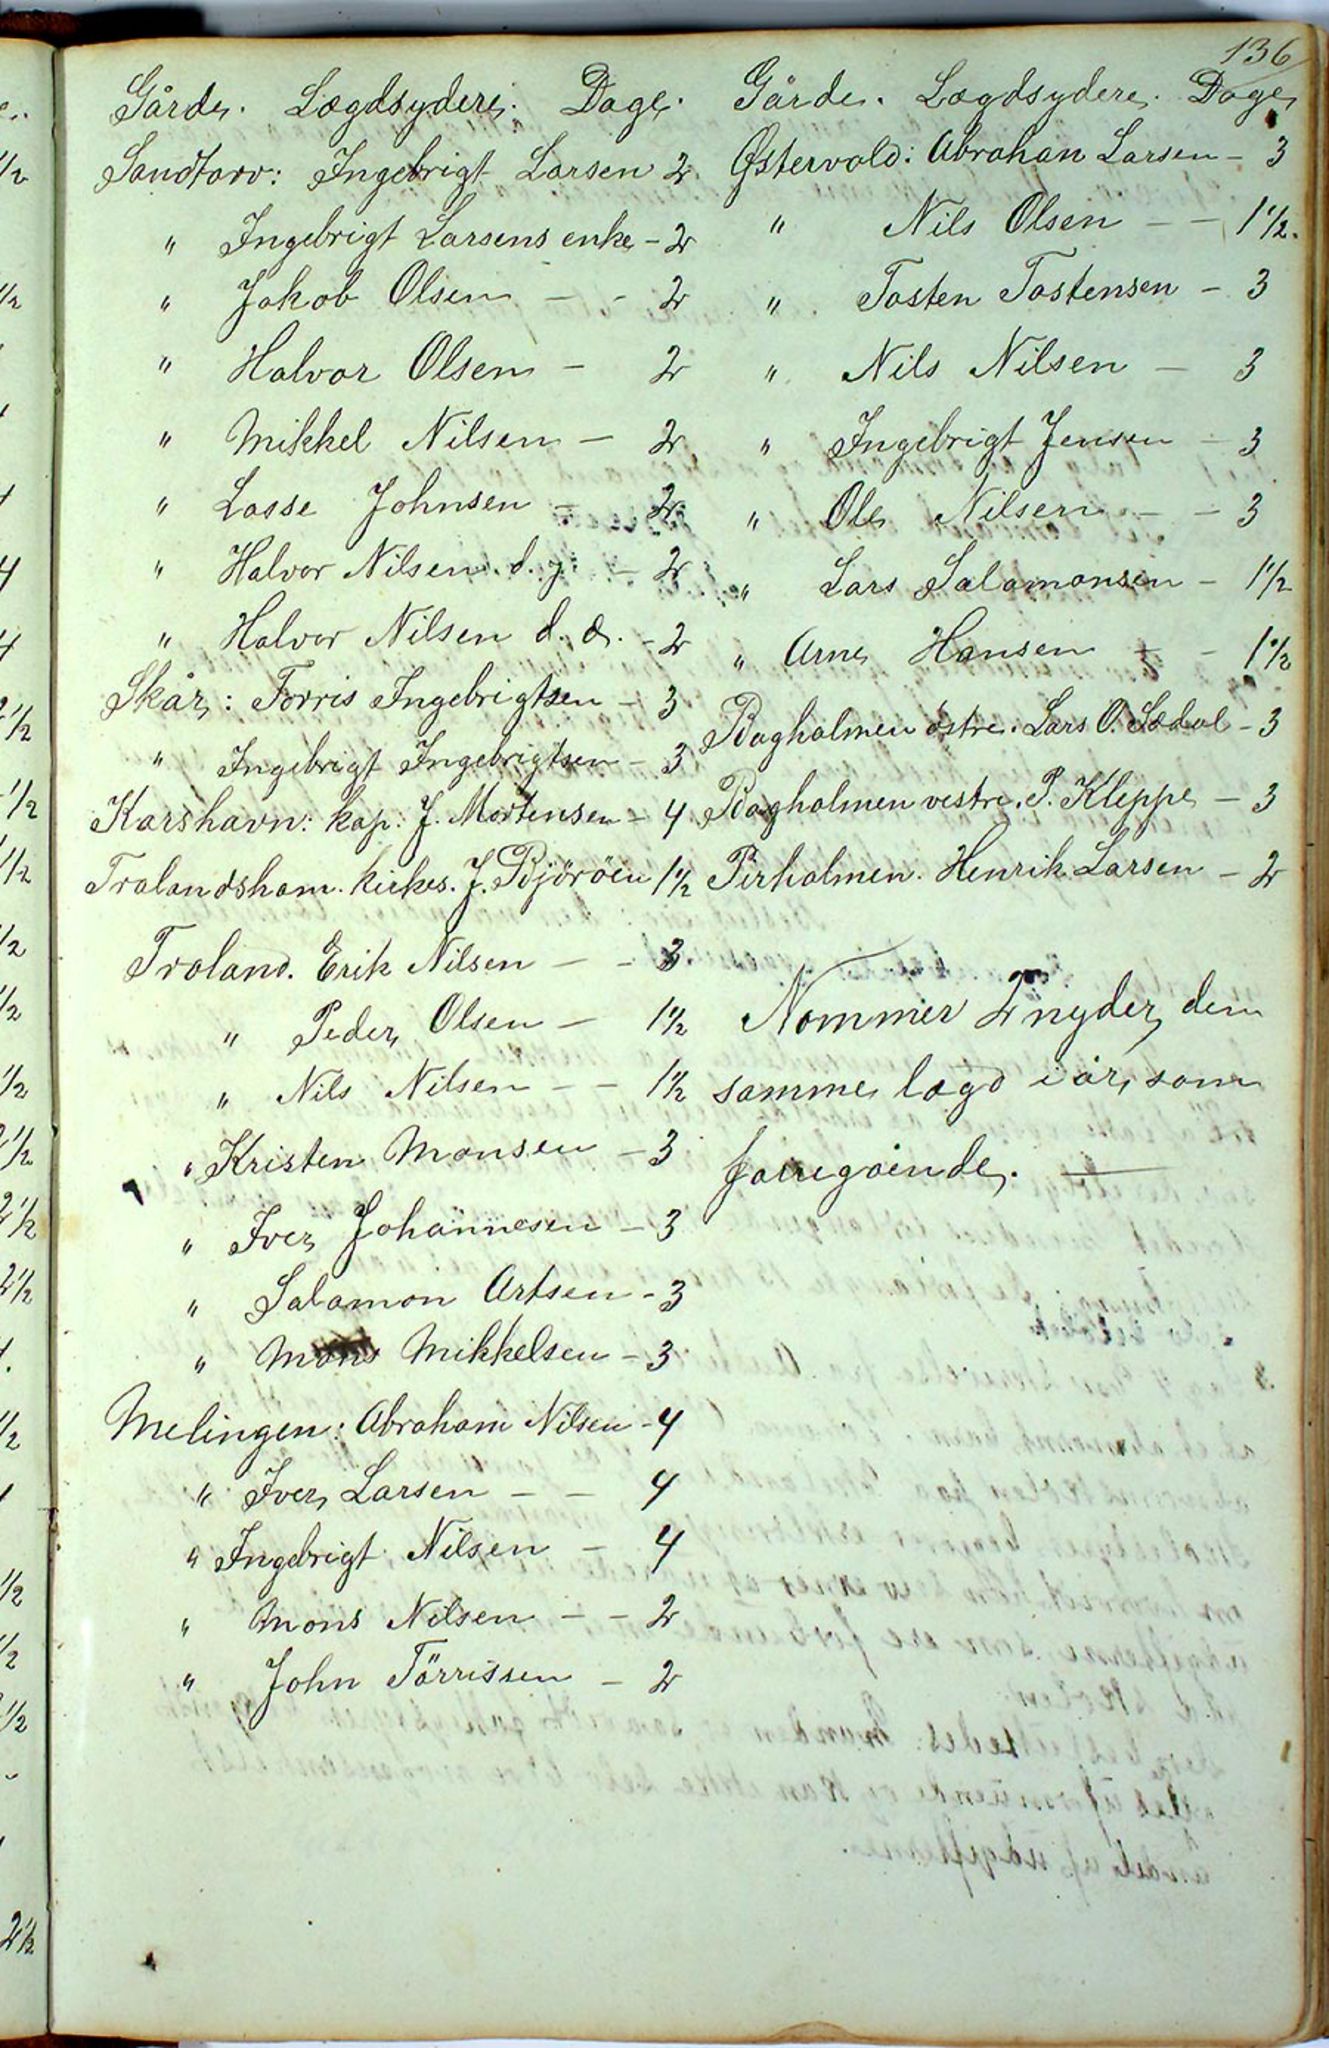 136
Gårde. Lægdsydere. Dage.
Sandtorv: Ingebrigt Larsen 2
" Ingebrigt Larsens enke - 2
" Jakob Olsen - - 2
" Halvor Olsen - 2
" Mikkel Nilsen - 2
" Lasse Johnsen - 2
" Halvor Nilsen d. y. - 2
" Halvor Nilsen d. æ. - 2
Skår: Torris Ingebrigtsen - 3
" Ingebrigt Ingebrigtsen - 3
Karshavn: kap: J. Mortensen - 4
Tralandsham. kirkes. J. Björöen 1 1/2
Traland. Erik Nilsen - - 3
" Peder Olsen - 1 1/2
" Nils Nilsen - - 1 1/2
" Kristen Monsen - 3
" Iver Johannesen - 3
" Salamon Artsen - 3
" Mons Mikkelsen - 3
Melingen: Abraham Nilsen - 4
" Iver Larsen - - 4
" Ingebrigt Nilsen - 4
" Mons Nilsen - - 2
" John Törrissen - 2
Gårde. Lægdsydere. Dage
Østervold: Abrahan Larsen - 3
" Nils Olsen - - 1 1/2.
" Tosten Tostensen - 3
" Nils Nilsen - 3
" Ingebrigt Jensen - 3
" Ole Nilsen - - 3
" Lars Salamonsen - 1 1/2
" Arne Hansen - - 1 1/2
Bagholmen östre. Lars O. Sædal - 3
Bagholmen vestre. P. Kleppe - 3
Pirholmen. Henrik Larsen - 2
Nommer 2 nyder den
samme lægd i år, som
forregående.